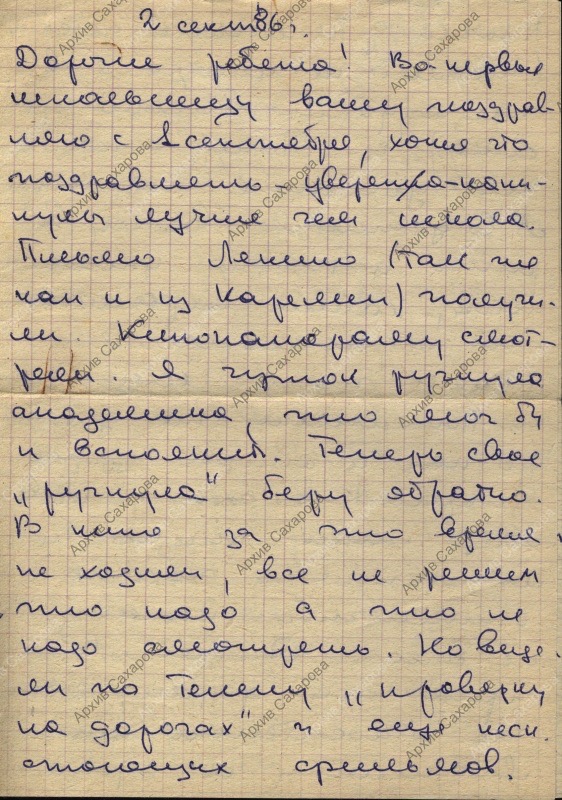 2 сент 86 г.
Дорогие ребята! Во-первых
школьницу вашу поздрав-
ляю с 1 сентября, хотя что
поздравлять - уверена-кани-
кулы лучше чем школа.
Письмо Ленино (так же
как и из Карелии) получи-
ли. Кинопанораму смот-
рели. Я чуток ругнула
академика, что мог бы
и вспомнить. Теперь свое
„ругнула" беру обратно.
В кино за это время
не ходили, все не решим
что надо а что не
надо смотреть. Но виде-
ли по Телеку „проверку
на дорогах" и еще неск.
стоющих фильмов.
Архив Сахарова